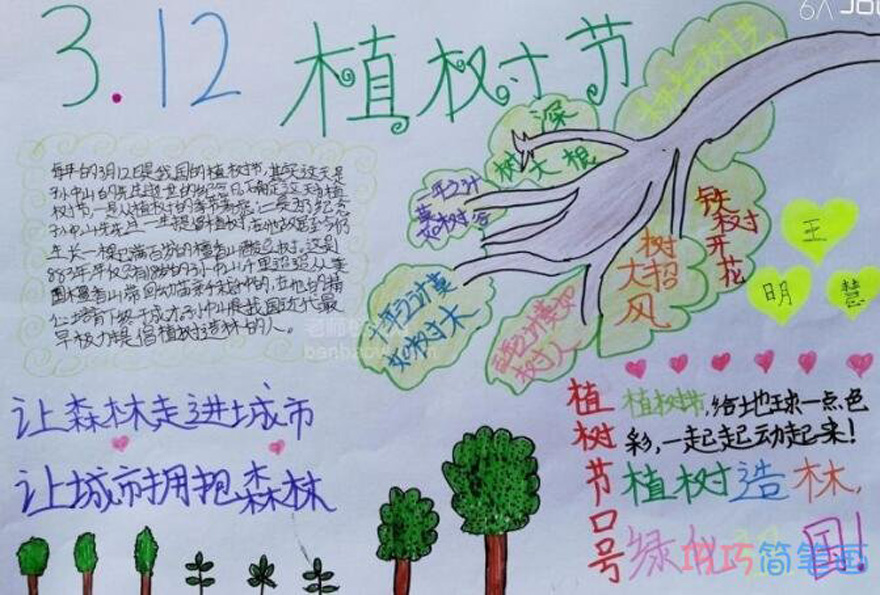 3.12 植树节
每年的3月12日是我国的植树节,其实这天是
孙中山的先生逝世的纪念日,确定这天为植
树节一是从植树的季节考虑,二是为纪念
孙中山先生一生提倡植树,在他故居至今仍
生长一棵已满百岁的檀香山酸豆树,这是
883年年仅的孙中山千里迢迢从美
国檀香山带回幼苗亲手栽种的,在他的精
心培育下终于成才,孙中山是我国近代最
早极力提倡植树造林的人。
树大根
深
一年之计
莫如树谷
十年之计莫
如树木
百年之计莫如
树人
树
大招
风
铁树
开
花
王
明
慧
让森林走进城市
让城市拥抱森林
植树节口号
植树节,给地球一点色
彩,一起起动起来!
植树造林,
绿化
国!
巧巧简笔画